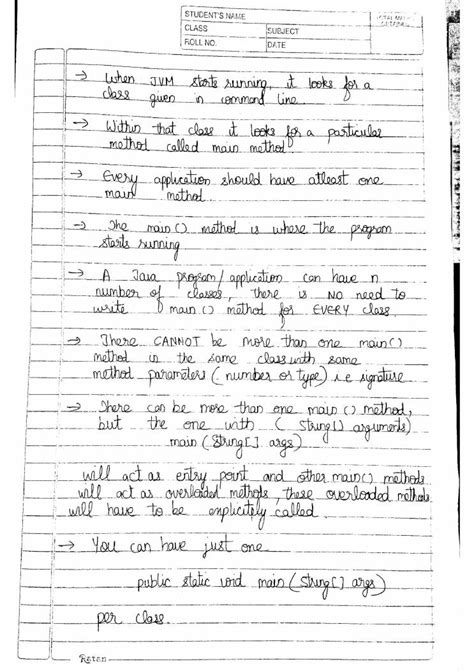 STUDENT'S NAME
CLASS SUBJECT
ROLL NO. DATE
→ When JVM starts running, it looks for a
class given in command line.
→ Within that class it looks for a particular
method called main method.
→ Every application should have atleast one
main method.
→ The main() method is where the program
starts running
→ A Java program/application can have n
number of classes, there is NO need to
write main() method for EVERY class.
→ There CANNOT be more than one main()
method in the same class with same
method parameters (number or type) i.e signature
→ There can be more than one main() method,
but the one with (String[] arguments)
main (String[] args)
will act as entry point and other main() methods
will act as overloaded methods, these overloaded methods
will have to be explicitely called.
→ You can have just one
public static void main (String[] args)
per class.
Ratan